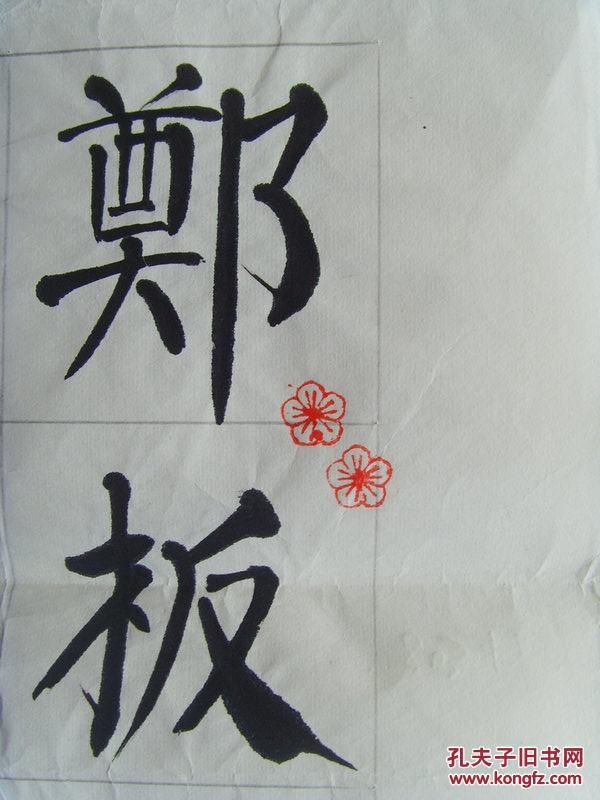 鄭
板
孔夫子旧书网
www.kongfz.com